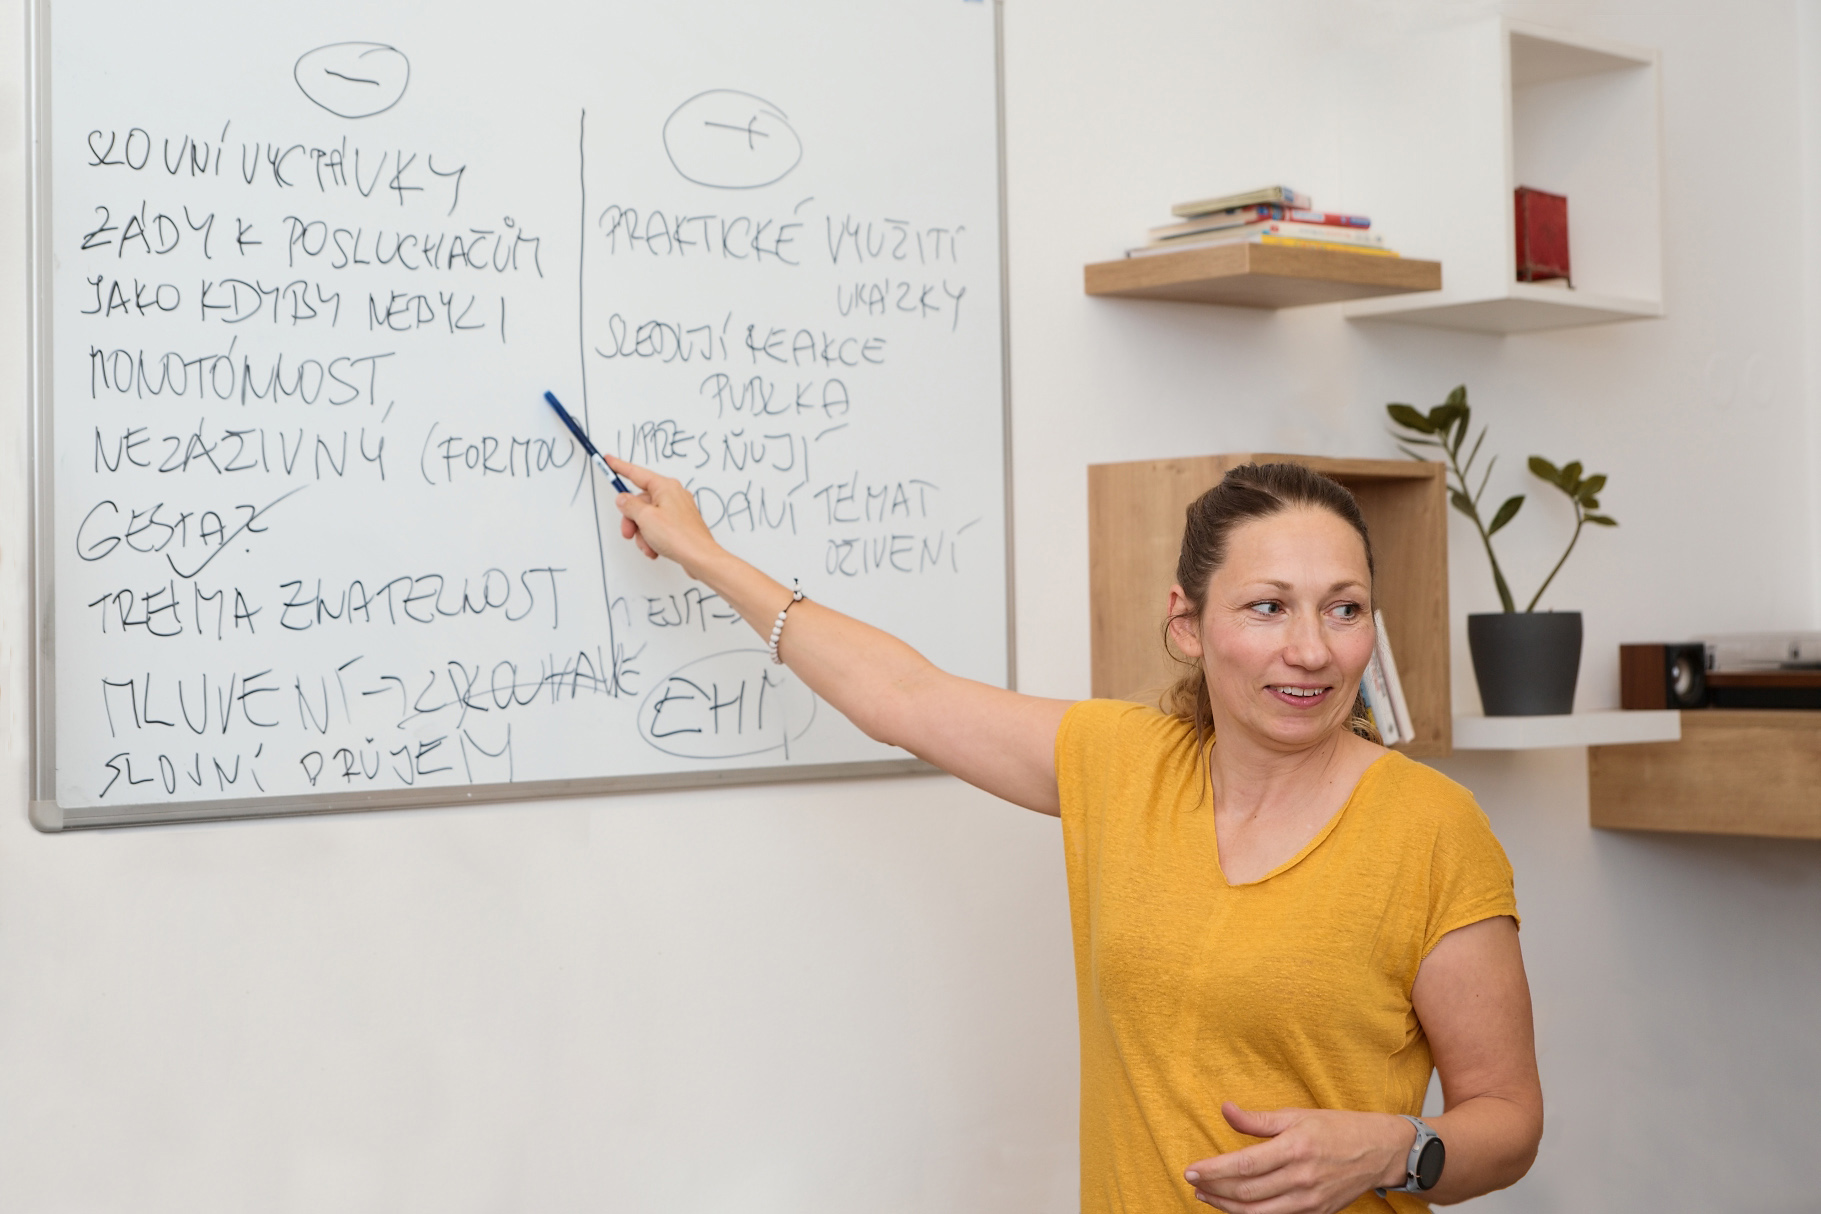 −
SLOVNÍ VYCPÁVKY
ZÁDY K POSLUCHAČŮM
JAKO KDYBY NEBYLI
MONOTÓNNOST,
NEZÁŽIVNÝ (FORMOU)
GESTA
TRÉMA ZNATELNOST
MLUVENÍ
SLOVNÍ PRŮJEM
+
PRAKTICKÉ VYUŽITÍ
UKÁZKY
SLEDUJÍ REAKCE
PUBLIKA
UPŘESŇUJÍ
TÉMAT
OŽIVENÍ
EHM